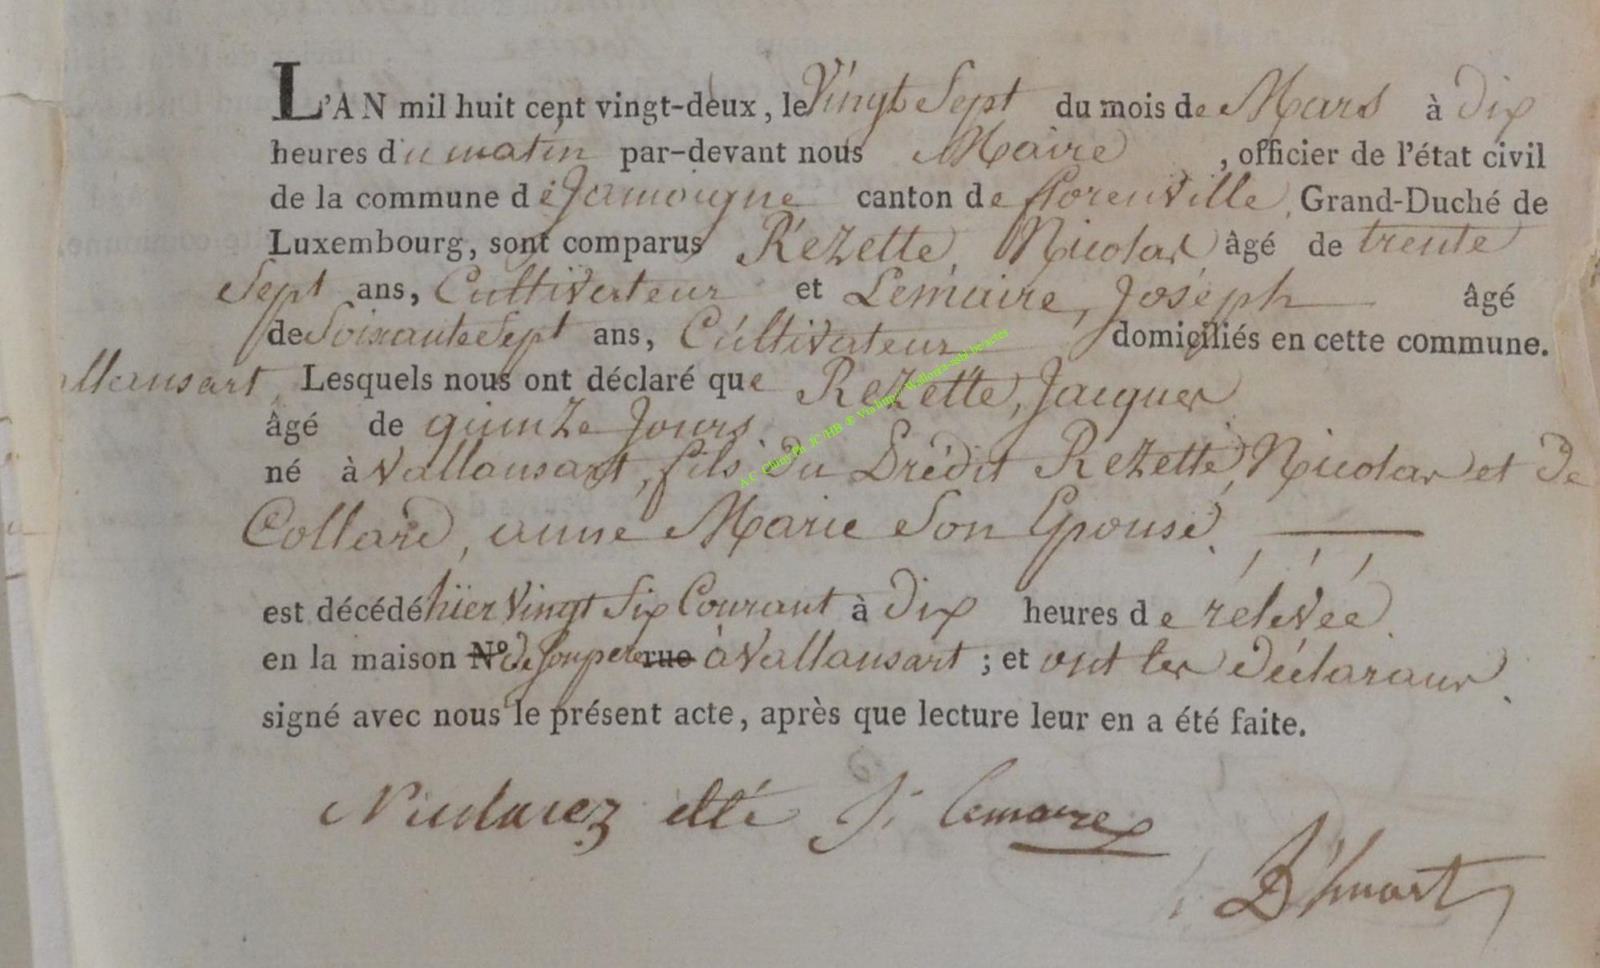 L'AN mil huit cent vingt-deux, le Vingt Sept du mois de Mars à dix
heures du matin par-devant nous Maire, officier de l'état civil
de la commune de Jamoigne canton de florenville, Grand-Duché de
Luxembourg, sont comparus Rézette, Nicolas âgé de trente
Sept ans, Cultivateur et Lemaire, Joséph âgé
de Soixante Sept ans, Cultivateur domiciliés en cette commune.
allansart, Lesquels nous ont déclaré que Rezette, Jacques
âgé de quinze Jours
né à Vallansart, fils du Prédit Rezette, Nicolas et de
Collard, anne Marie Son Epouse.
est décédé hier Vingt Six Courant à dix heures de rélévée.
en la maison N° de Son pere rue à Vallansart; et ont les déclarans
signé avec nous le présent acte, après que lecture leur en a été faite.
Nicolas rez etté J. lemaire